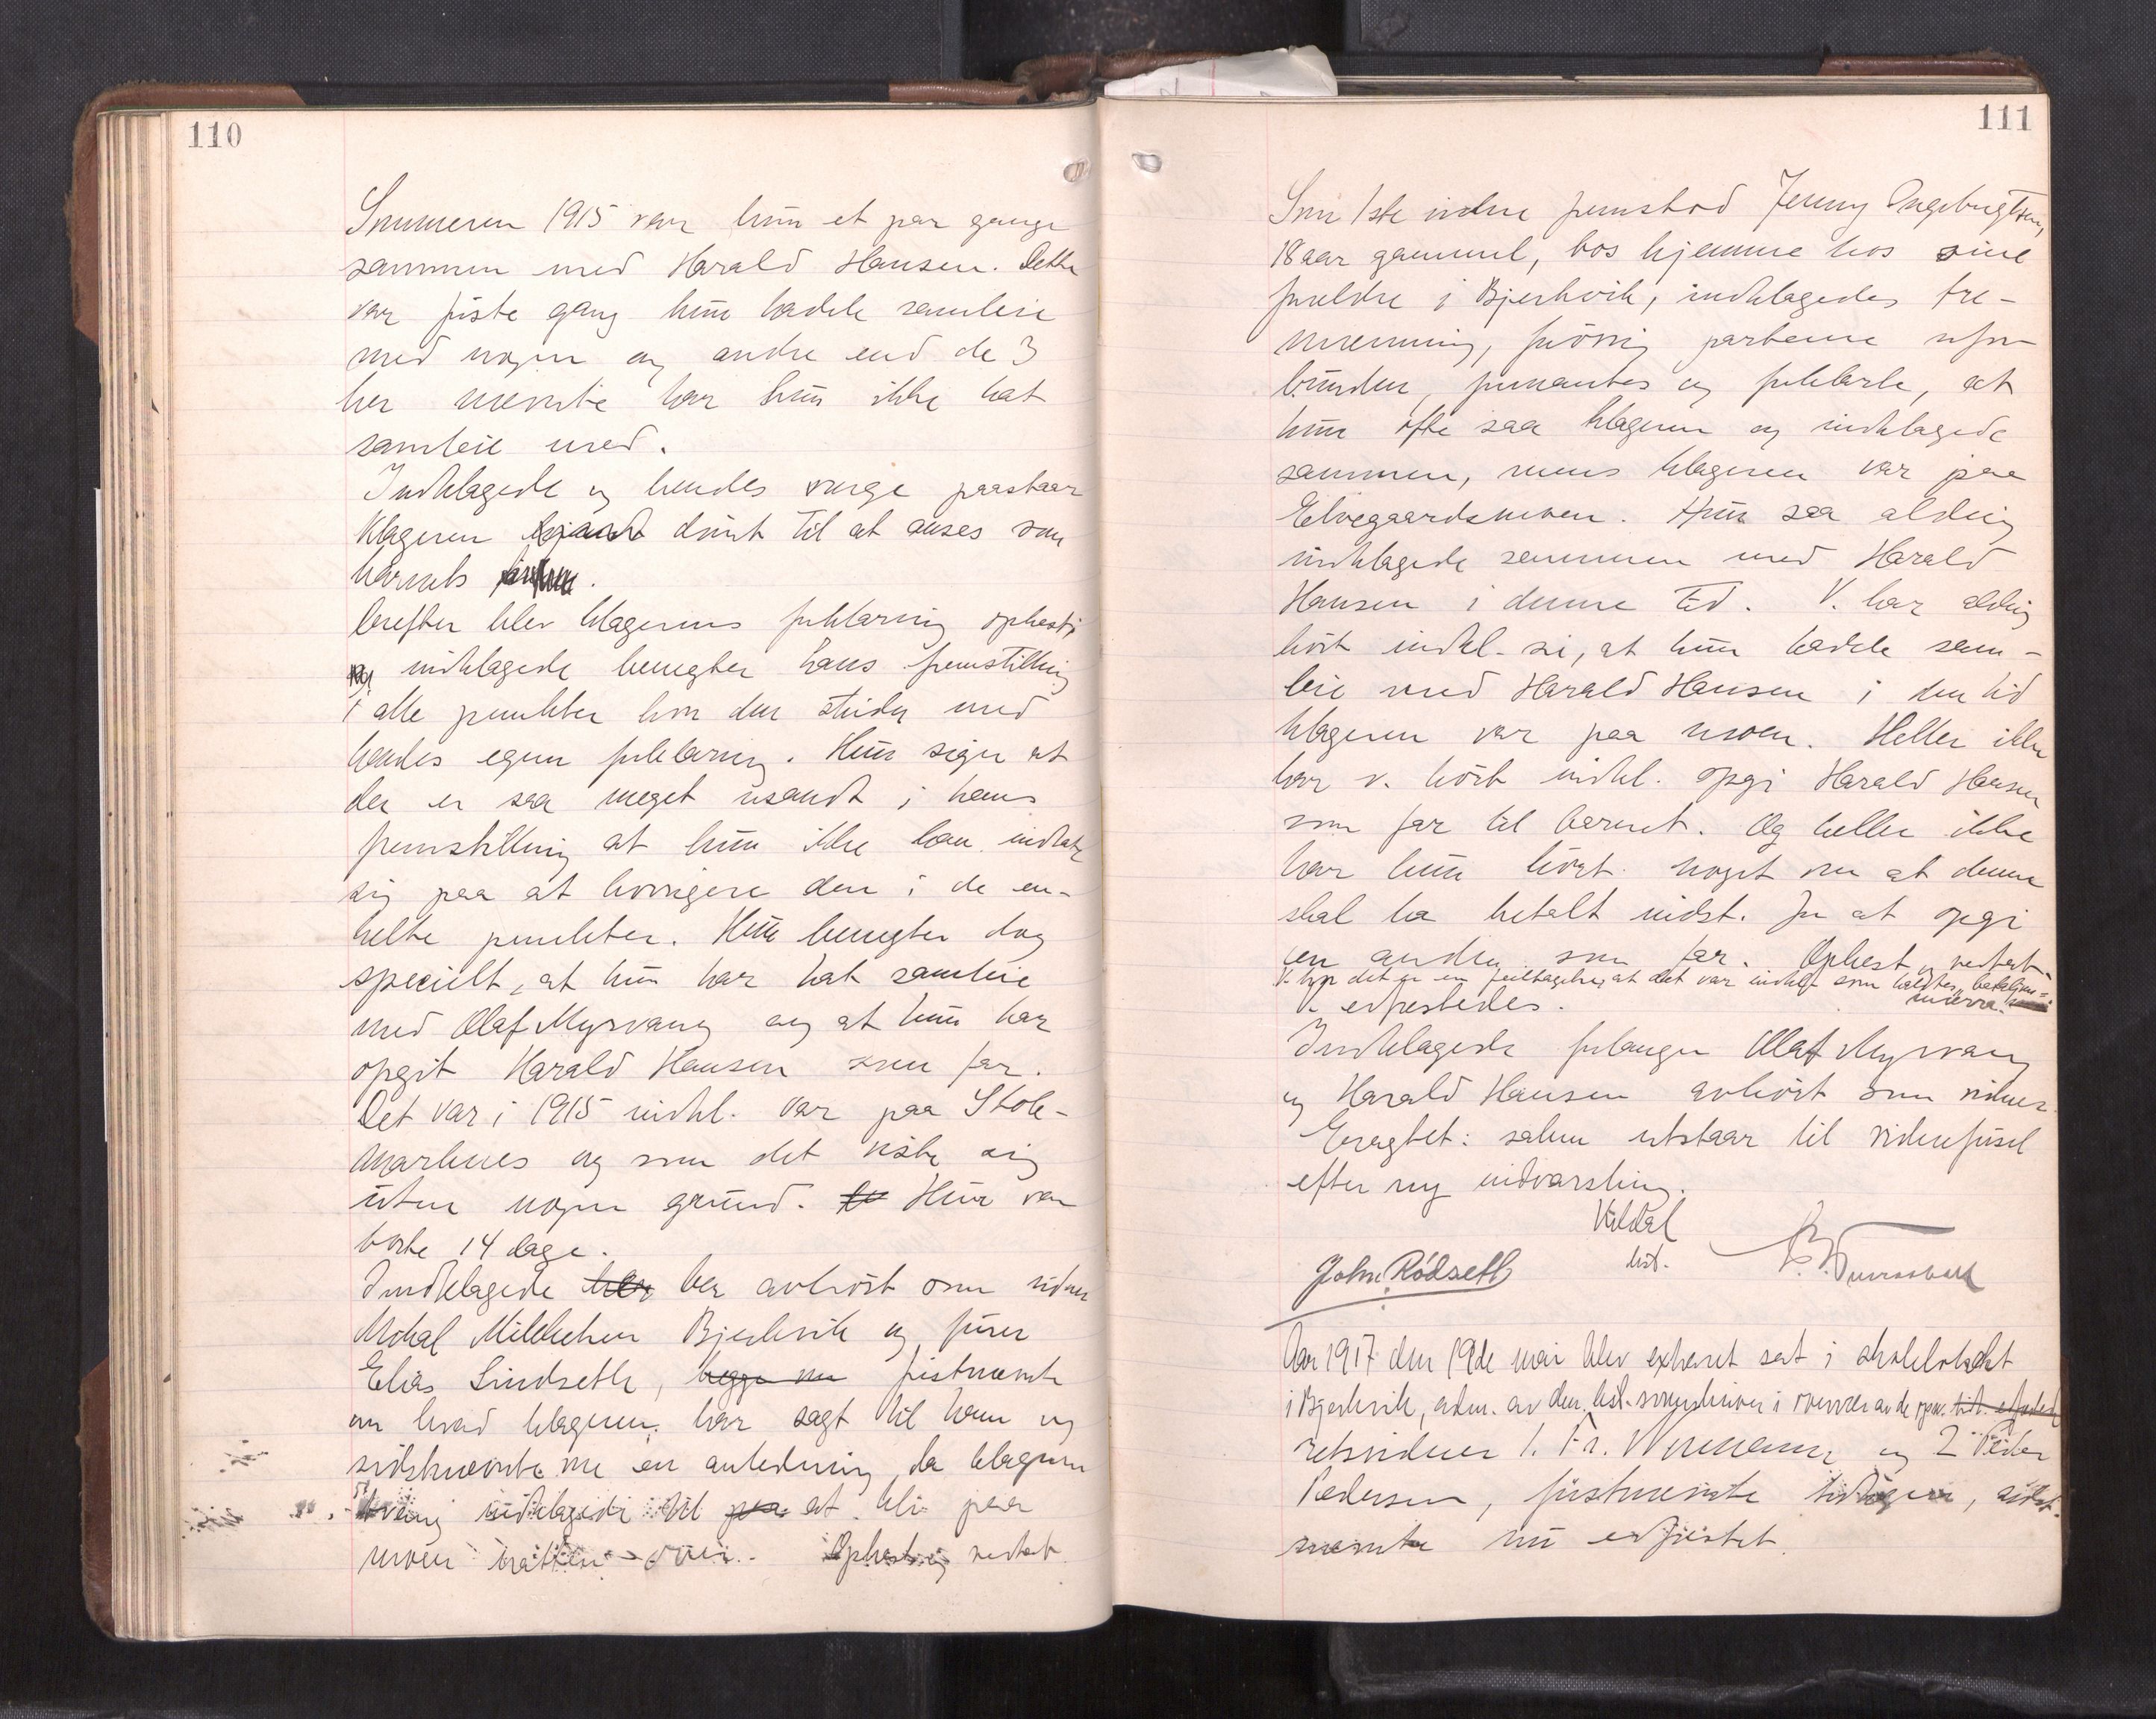 110
Sommeren 1915 var hun et par gange
sammen med Harald Hansen. Dette
var første gang hun hadde samleie
med nogen og andre end de 3
her nævnte har hun ikke hat
samleie med.
Indklagede og hendes verge paastaar
klageren dømt til at anses som
barnets
Derefter blev klagerens forklaring oplæst
og indklagede benegter hans fremstilling
i alle punkter hvor den strider med
hendes egen forklaring. Hun siger at
der er saa meget usandt i hans
fremstilling at hun ikke kan indlate
sig paa at korrigere den i de en-
kelte punkter. Hun benegter dog
specielt, at hun har hat samleie
med Olaf Myrvang og at hun har
opgit Harald Hansen som far.
Det var i 1915 indkl. var paa Stok-
marknes og som det viste sig
uten nogen grund. Hun var
borte 14 dage.
Indklagede ber avhørt som vidner
Bjerkvik og furer
Elias Lindseth, førstnævnte
om hvad klageren har sagt til ham og
sidstnævnte om en anledning da klageren
tvang indklagede til at bli paa
moen natten over. Oplæst og vedtat
111
Som 1ste vidne fremstod Jenny Ingebrigtsen,
18 aar gammel, bos hjemme hos sine
forældre i Bjerkvik, indklagedes tre-
menning, forøvrig parterne ufor
bunden, formantes og forklarte, at
hun ofte saa klageren og indklagede
sammen, mens klageren var paa
Elvegaardsmoen. Hun saa aldrig
indklagede sammen med Harald
Hansen i denne tid. V. har aldrig
hørt indkl. si, at hun hadde sam-
leie med Harald Hansen i den tid
klageren var paa moen. Heller ikke
har v. hørt indkl. opgi Harald Hansen
som far til barnet. Og heller ikke
har hun hørt noget om at denne
skal ha betalt indkl. for at opgi
en anden som far. Oplæst og vedtat.
det er en feiltagelse, at det var indkl. som
V. edfæstedes.
Indklagede forlanger Olaf Myrvang
og Harald Hansen avhørt som vidner
Eragtet: saken utstaar til vidneførsel
efter ny indvarsling.
Kildal
kst.
John Rødseth
Aar 1917 den 19de mai blev extraret sat i skolelokalet
i Bjerkvik, adm. av den kst. sorenskriver i overvær av de opn.
retsvidner 1. Fr. Wermann og 2 Peder
Pedersen, førstnævnte tidligere, sidst-
nævnte nu edfæstet.